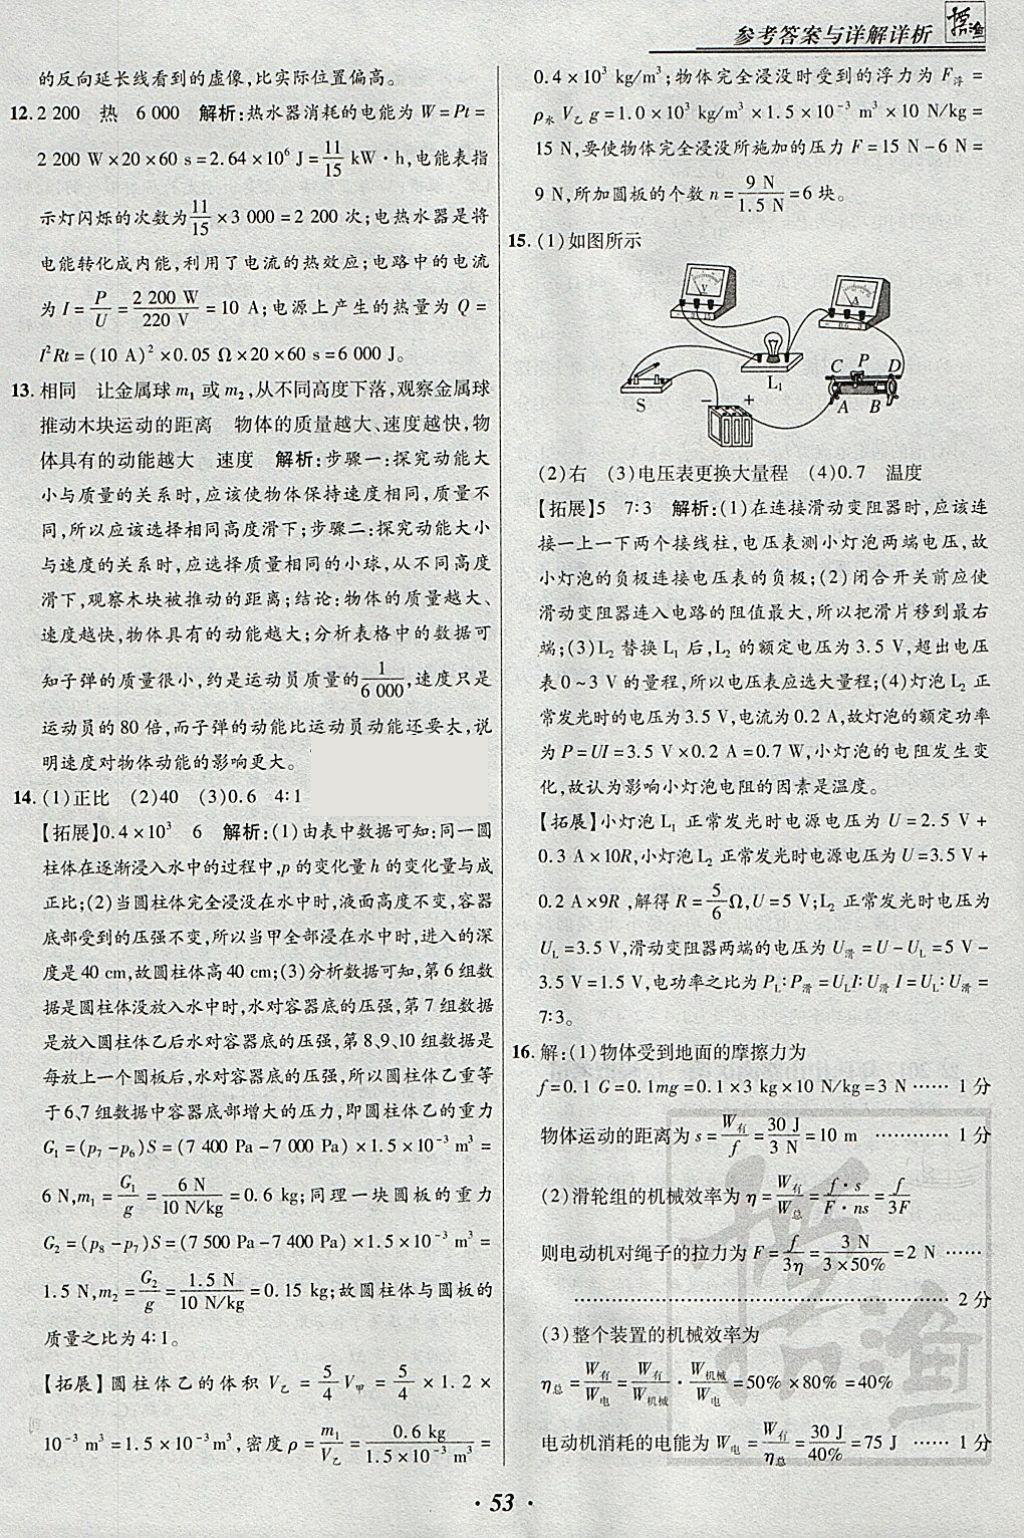 参考答案与详解详析
的反向延长线看到的虚像,比实际位置偏高。
12. 2 200　热　6 000　解析:热水器消耗的电能为 W=Pt=
2 200 W×20×60 s=2.64×10⁶ J=11/15 kW·h,电能表指
示灯闪烁的次数为11/15×3 000=2 200 次;电热水器是将
电能转化成内能,利用了电流的热效应;电路中的电流
为 I=P/U=2 200 W/220 V=10 A;电源上产生的热量为 Q=
I²Rt=(10 A)²×0.05 Ω×20×60 s=6 000 J。
13. 相同　让金属球 m₁ 或 m₂,从不同高度下落,观察金属球
推动木块运动的距离　物体的质量越大、速度越快,物
体具有的动能越大　速度　解析:步骤一:探究动能大
小与质量的关系时,应该使物体保持速度相同,质量不
同,所以应该选择相同高度滑下;步骤二:探究动能大小
与速度的关系时,应选质量相同的小球,从不同高度
滑下,观察木块被推动的距离;结论:物体的质量越大、
速度越快,物体具有的动能越大;分析表格中的数据可
知子弹的质量很小,约是运动员质量的1/6 000,速度只是
运动员的 80 倍,而子弹的动能比运动员动能还要大,说
明速度对物体动能的影响更大。
14. (1)正比　(2)40　(3)0.6　4∶1
【拓展】0.4×10³　6　解析:(1)由表中数据可知:同一圆
柱体在逐渐浸入水中的过程中,p 的变化量 h 的变化量与成
正比;(2)当圆柱体完全浸没在水中时,液面高度不变,容器
底部受到的压强不变,所以当甲全部浸在水中时,进入的深
度是 40 cm,故圆柱体高 40 cm;(3)分析数据可知,第 6 组数
据是圆柱体没放入水中时,水对容器底的压强,第 7 组数据
是放入圆柱体乙后水对容器底的压强,第 8、9、10 组数据是
每放上一个圆板后,水对容器底的压强,所以圆柱体乙重等
于6、7 组数据中容器底部增大的压力,即圆柱体乙的重力
G₁=(p₇-p₆)S=(7 400 Pa-7 000 Pa)×1.5×10⁻³ m³=
6 N,m₁=G₁/g=6 N/10 N/kg=0.6 kg;同理一块圆板的重力
G₂=(p₈-p₇)S=(7 500 Pa-7 400 Pa)×1.5×10⁻³ m³=
1.5 N,m₂=G₂/g=1.5 N/10 N/kg=0.15 kg;故圆柱体与圆板的
质量之比为 4∶1。
【拓展】圆柱体乙的体积 V乙=5/4V甲=5/4×1.2×
10⁻³ m³=1.5×10⁻³ m³,密度 ρ=m₁/V乙=0.6 kg/1.5×10⁻³ m³=
0.4×10³ kg/m³;物体完全浸没时受到的浮力为 F浮=
ρ水 V乙 g=1.0×10³ kg/m³×1.5×10⁻³ m³×10 N/kg=
15 N,要使物体完全浸没所施加的压力 F=15 N-6 N=
9 N,所加圆板的个数 n=9 N/1.5 N=6 块。
15. (1)如图所示
V
A
L₁
S
-
+
C
P
D
A
B
(2)右　(3)电压表更换大量程　(4)0.7　温度
【拓展】5　7∶3　解析:(1)在连接滑动变阻器时,应该连
接一上一下两个接线柱,电压表测小灯泡两端电压,故
小灯泡的负极连接电压表的负极;(2)闭合开关前应使
滑动变阻器连入电路的阻值最大,所以把滑片移到最右
端;(3)L₂ 替换 L₁ 后,L₂ 的额定电压为 3.5 V,超出电压
表 0~3 V 的量程,所以电压表应选大量程;(4)灯泡 L₂ 正
常发光时的电压为 3.5 V,电流为 0.2 A,故灯泡的额定功率
为 P=UI=3.5 V×0.2 A=0.7 W,小灯泡的电阻发生变
化,故认为影响小灯泡电阻的因素是温度。
【拓展】小灯泡 L₁ 正常发光时电源电压为 U=2.5 V+
0.3 A×10R,小灯泡 L₂ 正常发光时电源电压为 U=3.5 V+
0.2 A×9R,解得 R=5/6Ω,U=5 V;L₂ 正常发光时电压为
U_L=3.5 V,滑动变阻器两端的电压为 U滑=U-U_L=5 V-
3.5 V=1.5 V,电功率之比为 P_L∶P滑=U_LI∶U滑 I=U_L∶U滑=
7∶3。
16. 解:(1)物体受到地面的摩擦力为
f=0.1 G=0.1mg=0.1×3 kg×10 N/kg=3 N …… 1 分
物体运动的距离为 s=W有/f=30 J/3 N=10 m ………… 1 分
(2)滑轮组的机械效率为 η=W有/W总=f·s/F·ns=f/3F
则电动机对绳子的拉力为 F=f/3η=3 N/3×50%=2 N ……
……………………………………………… 2 分
(3)整个装置的机械效率为
η总=W有/W电=W有/W机械·W机械/W电=50%×80%=40%
电动机消耗的电能为 W电=W有/η总=30 J/40%=75 J …… 1 分
· 53 ·